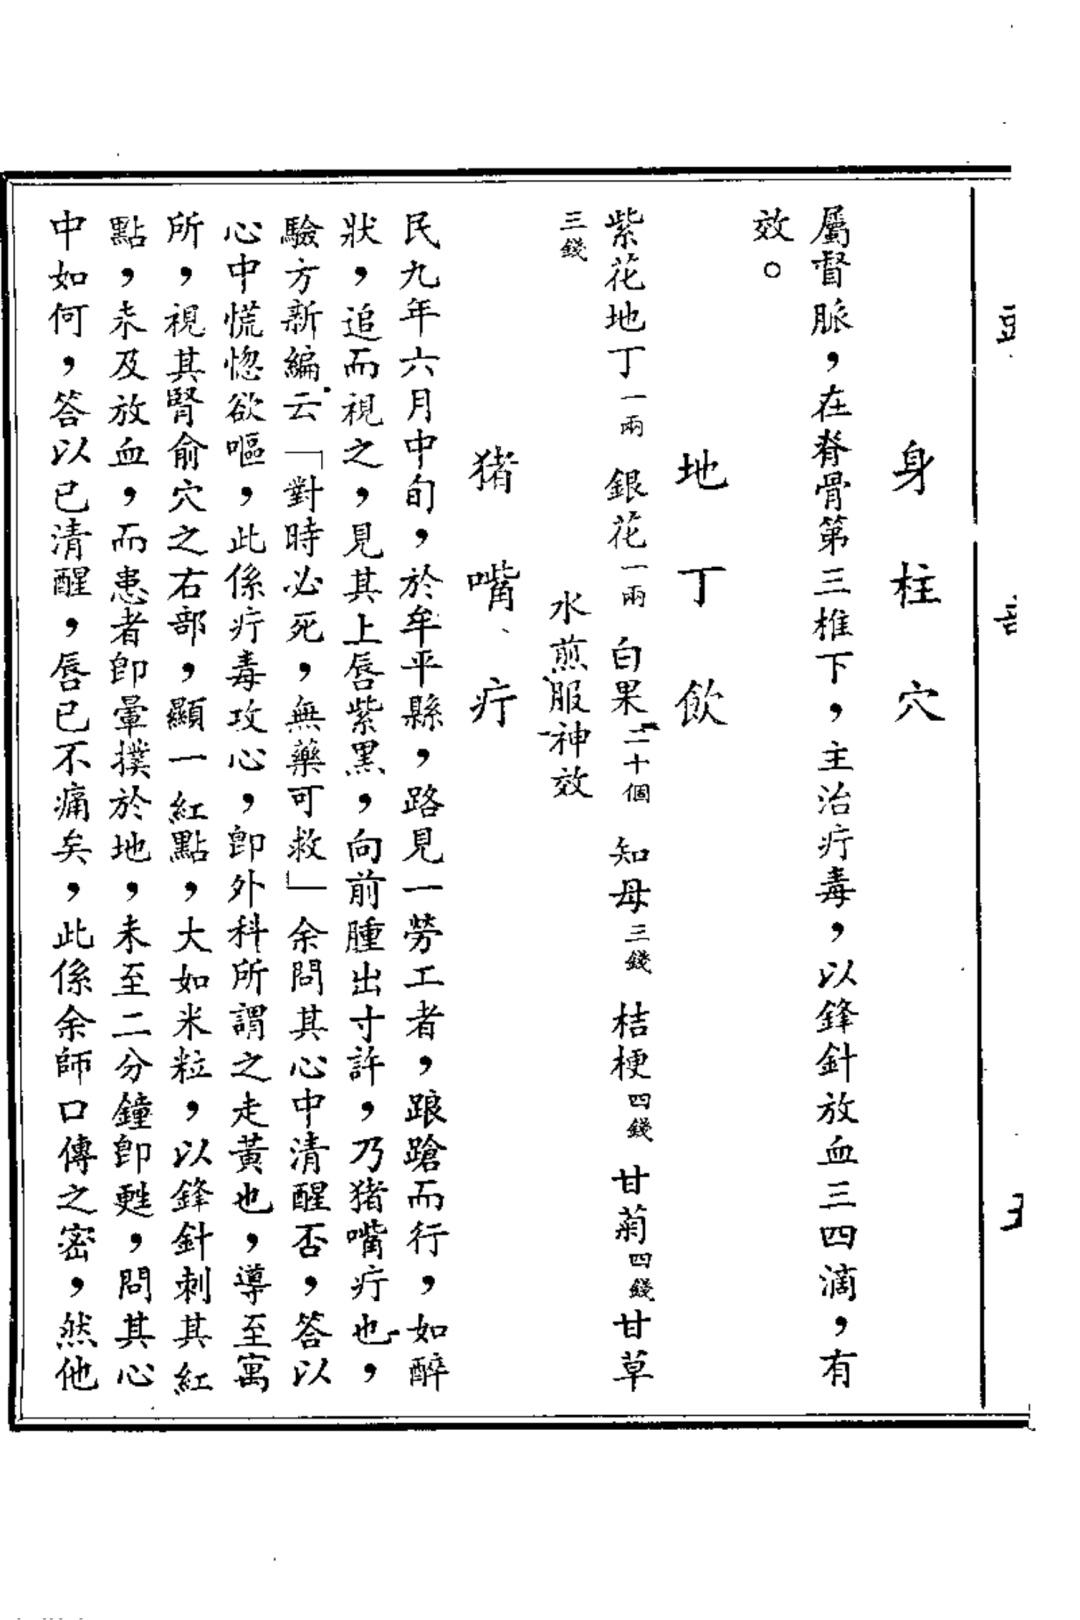 身柱穴
屬督脈，在脊骨第三椎下，主治疔毒，以鋒針放血三四滴，有
效。
地丁飲
紫花地丁一兩　銀花一兩　白果二十個　知母三錢　桔梗四錢　甘菊四錢　甘草
三錢
水煎服神效
猪嘴疔
民九年六月中旬，於牟平縣，路見一勞工者，踉蹌而行，如醉
狀，追而視之，見其上唇紫黑，向前腫出寸許，乃猪嘴疔也，
驗方新編云「對時必死，無藥可救」余問其心中清醒否，答以
心中慌惚欲嘔，此係疔毒攻心，卽外科所謂之走黃也，導至寓
所，視其腎俞穴之右部，顯一紅點，大如米粒，以鋒針刺其紅
點，未及放血，而患者卽暈撲於地，未至二分鐘卽甦，問其心
中如何，答以已清醒，唇已不痛矣，此係余師口傳之密，然他